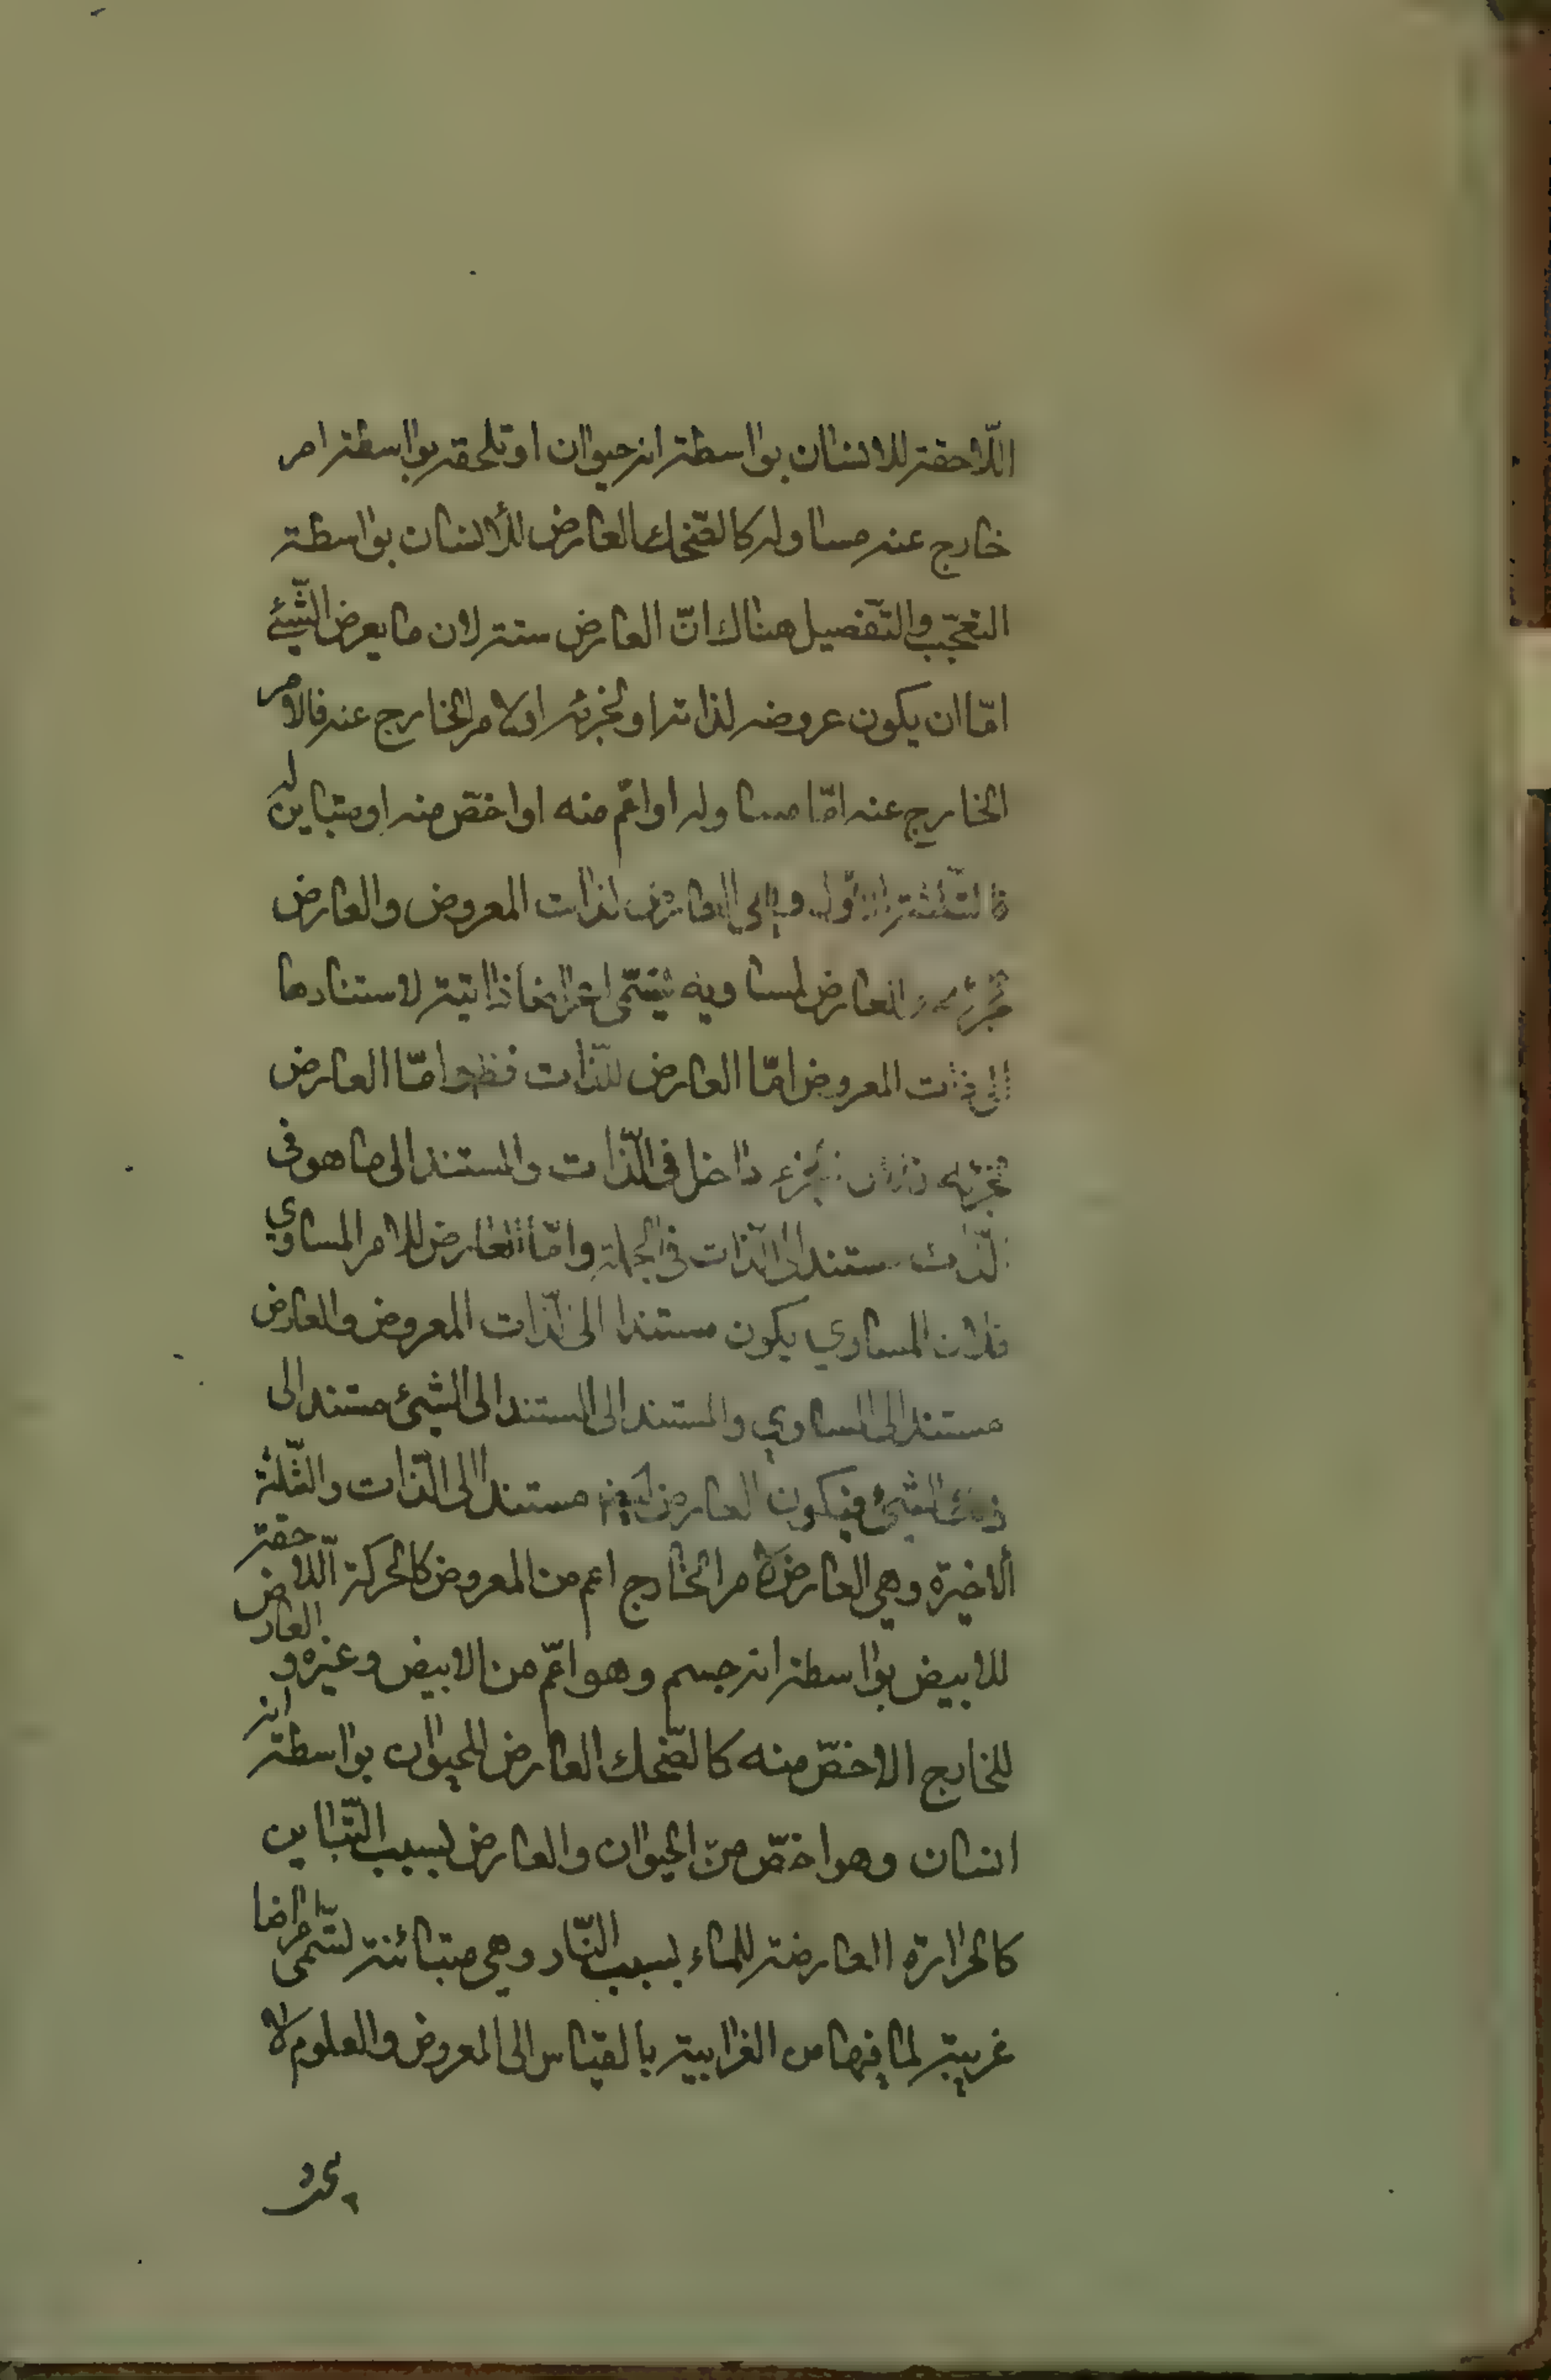 اللّاحقة للانسان بواسطة انه حيوان او تلحقه بواسطة امر
خارج عنه مساو له كالضّحك العارض للأنسان بواسطة
التعجّب والتّفصيل هناك انّ العارض ستة لان ما يعرض الشّيئ
امّا ان يكون عروضه لذاته او لجزئه او لامر الخارج عنه فالامر
الخارج عنه امّا مساو له او اعّم منه او اخصّ منه او متباين له
فالثّلثة الاول وهي العارض لذات المعروض والعارض
لجزئه والعارض لمساويه يسّمى اعراضا ذاتية لاستنادها
الى ذات المعروض امّا العارض للذّات فظ وامّا العارض
لجزئه فلان الجزء داخل فى الّذات والمستند الى ما هو فى
الّذات مستند الى الّذات فى الجملة وامّا العارض للامر المساوي
فلان المساوي يكون مستندا الى الّذات المعروض والعارض
مستند الى المساوي والمستند الى المستند الى الشيئ مستند الى
ذلك الشيئ فيكون العارض ايضا مستندا الى الّذات والثّلثة
ألاخيرة وهي العارض لامر الخارج اعم من المعروض كالحركة الّلاحقة
للابيض بواسطة انه جسم وهو اعّم من الابيض وغيره والعارض
للخارج الاخصّ منه كالضّحك العارض للحيوان بواسطة انه
انسان وهو اخصّ من الحيوان والعارض بسبب التّباين
كالحرارة العارضة للماء بسبب النّار وهي متبائنة تسّمى اعراضا
غريبة لما فيها من الغرابية بالقياس الى المعروض والعلوم لا
يبحث